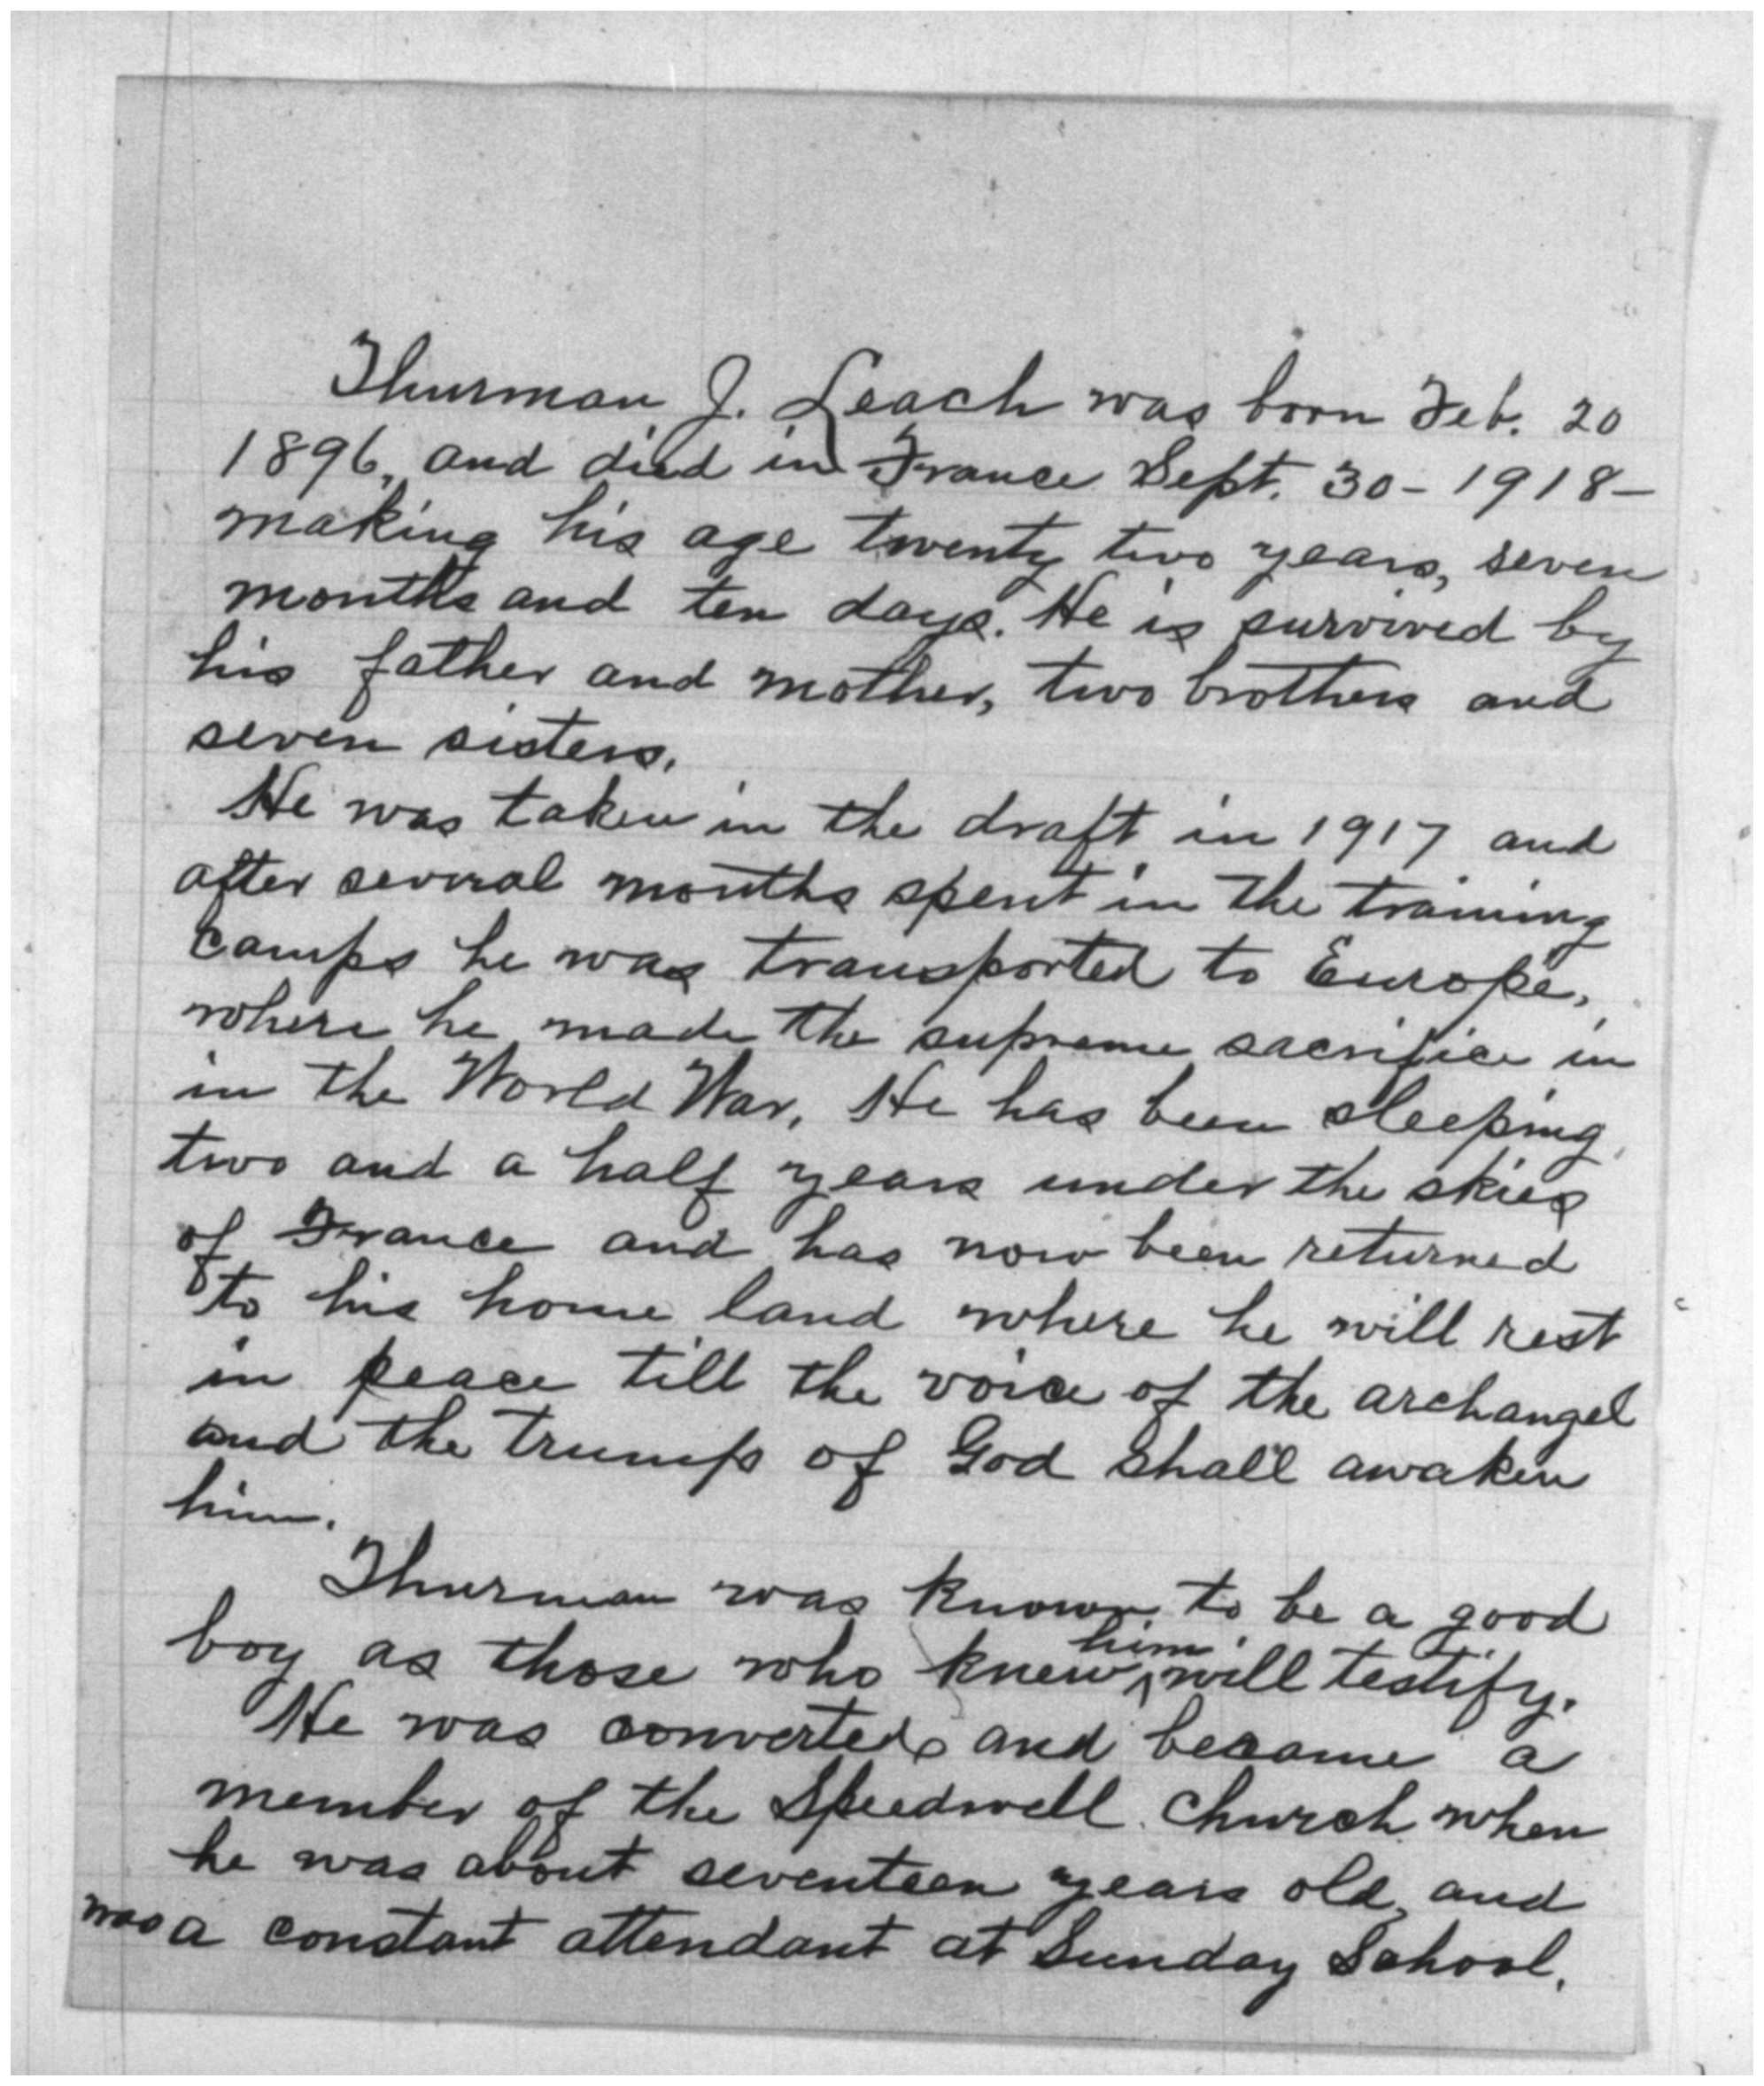 Thurman J. Leach was born Feb. 20
1896, and died in France Sept. 30 - 1918 -
making his age twenty two years, seven
months and ten days. He is survived by
his father and mother, two brothers and
seven sisters.
He was taken in the draft in 1917 and
after several months spent in the training
camps he was transported to Europe,
where he made the supreme sacrifice in
in the World War. He has been sleeping
two and a half years under the skies
of France and has now been returned
to his home land where he will rest
in peace till the voice of the archangel
and the trump of God shall awaken
him.
Thurman was known to be a good
boy as those who knew him will testify.
He was converted and became a
member of the Speedwell Church when
he was about seventeen years old, and
was a constant attendant at Sunday School.